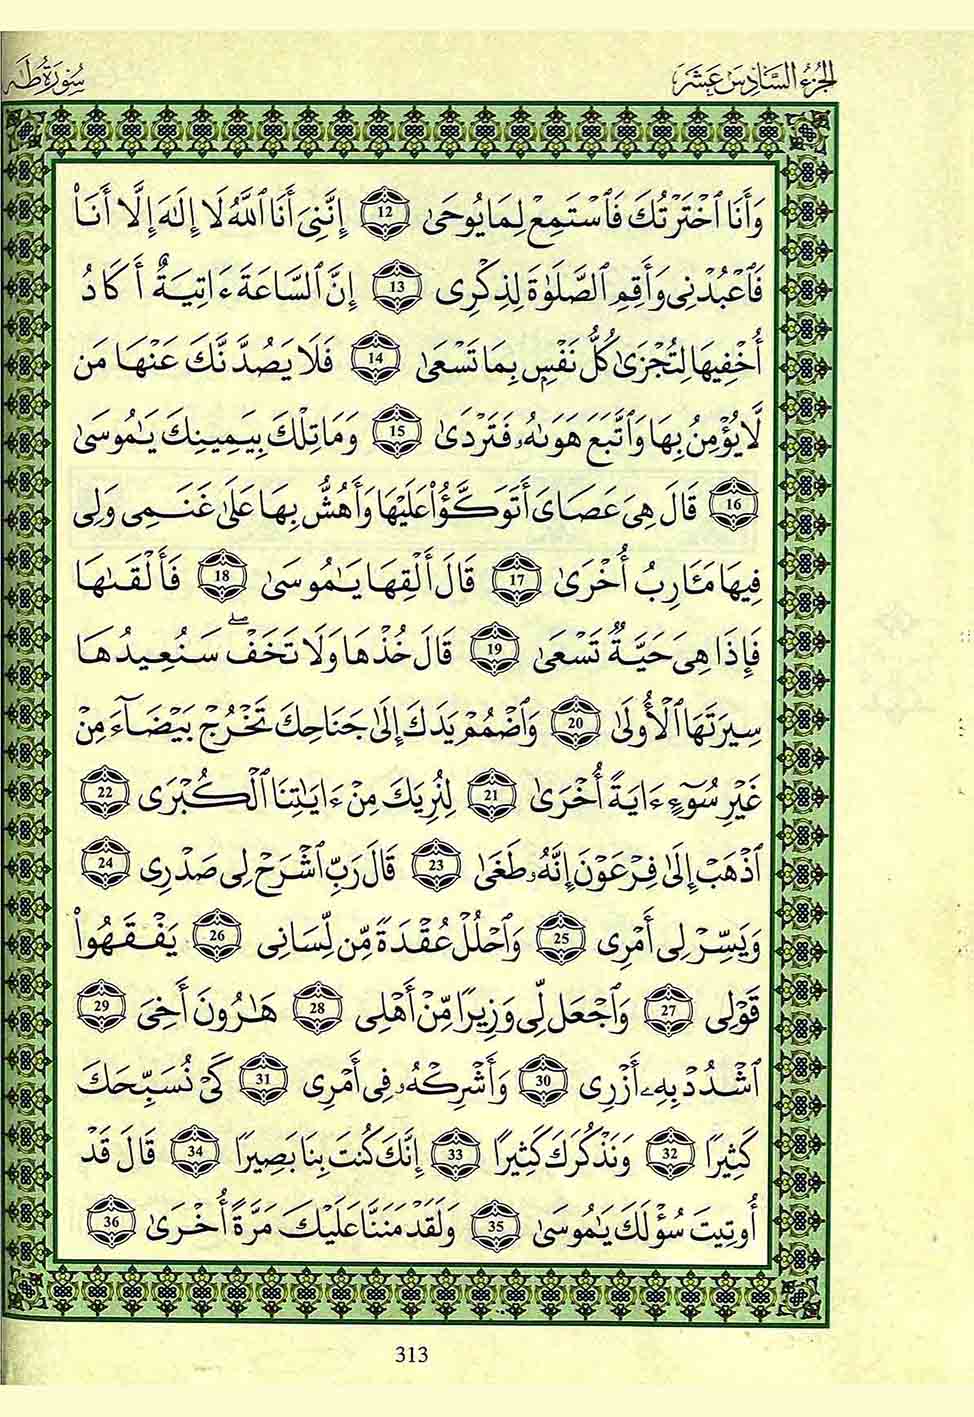 الجُزْءُ السَّادِسَ عَشَرَ
سُورَةُ طه
وَأَنَا ٱخْتَرْتُكَ فَٱسْتَمِعْ لِمَا يُوحَىٰٓ 12 إِنَّنِىٓ أَنَا ٱللَّهُ لَآ إِلَٰهَ إِلَّآ أَنَا۠
فَٱعْبُدْنِى وَأَقِمِ ٱلصَّلَوٰةَ لِذِكْرِىٓ 13 إِنَّ ٱلسَّاعَةَ ءَاتِيَةٌ أَكَادُ
أُخْفِيهَا لِتُجْزَىٰ كُلُّ نَفْسٍۭ بِمَا تَسْعَىٰ 14 فَلَا يَصُدَّنَّكَ عَنْهَا مَن
لَّا يُؤْمِنُ بِهَا وَٱتَّبَعَ هَوَىٰهُ فَتَرْدَىٰ 15 وَمَا تِلْكَ بِيَمِينِكَ يَٰمُوسَىٰ
16 قَالَ هِىَ عَصَاىَ أَتَوَكَّؤُا۟ عَلَيْهَا وَأَهُشُّ بِهَا عَلَىٰ غَنَمِى وَلِىَ
فِيهَا مَـَٔارِبُ أُخْرَىٰ 17 قَالَ أَلْقِهَا يَٰمُوسَىٰ 18 فَأَلْقَىٰهَا
فَإِذَا هِىَ حَيَّةٌ تَسْعَىٰ 19 قَالَ خُذْهَا وَلَا تَخَفْ ۖ سَنُعِيدُهَا
سِيرَتَهَا ٱلْأُولَىٰ 20 وَٱضْمُمْ يَدَكَ إِلَىٰ جَنَاحِكَ تَخْرُجْ بَيْضَآءَ مِنْ
غَيْرِ سُوٓءٍ ءَايَةً أُخْرَىٰ 21 لِنُرِيَكَ مِنْ ءَايَٰتِنَا ٱلْكُبْرَى 22
ٱذْهَبْ إِلَىٰ فِرْعَوْنَ إِنَّهُۥ طَغَىٰ 23 قَالَ رَبِّ ٱشْرَحْ لِى صَدْرِى 24
وَيَسِّرْ لِىٓ أَمْرِى 25 وَٱحْلُلْ عُقْدَةً مِّن لِّسَانِى 26 يَفْقَهُوا۟
قَوْلِى 27 وَٱجْعَل لِّى وَزِيرًا مِّنْ أَهْلِى 28 هَٰرُونَ أَخِى 29
ٱشْدُدْ بِهِۦٓ أَزْرِى 30 وَأَشْرِكْهُ فِىٓ أَمْرِى 31 كَىْ نُسَبِّحَكَ
كَثِيرًا 32 وَنَذْكُرَكَ كَثِيرًا 33 إِنَّكَ كُنتَ بِنَا بَصِيرًا 34 قَالَ قَدْ
أُوتِيتَ سُؤْلَكَ يَٰمُوسَىٰ 35 وَلَقَدْ مَنَنَّا عَلَيْكَ مَرَّةً أُخْرَىٰٓ 36
313